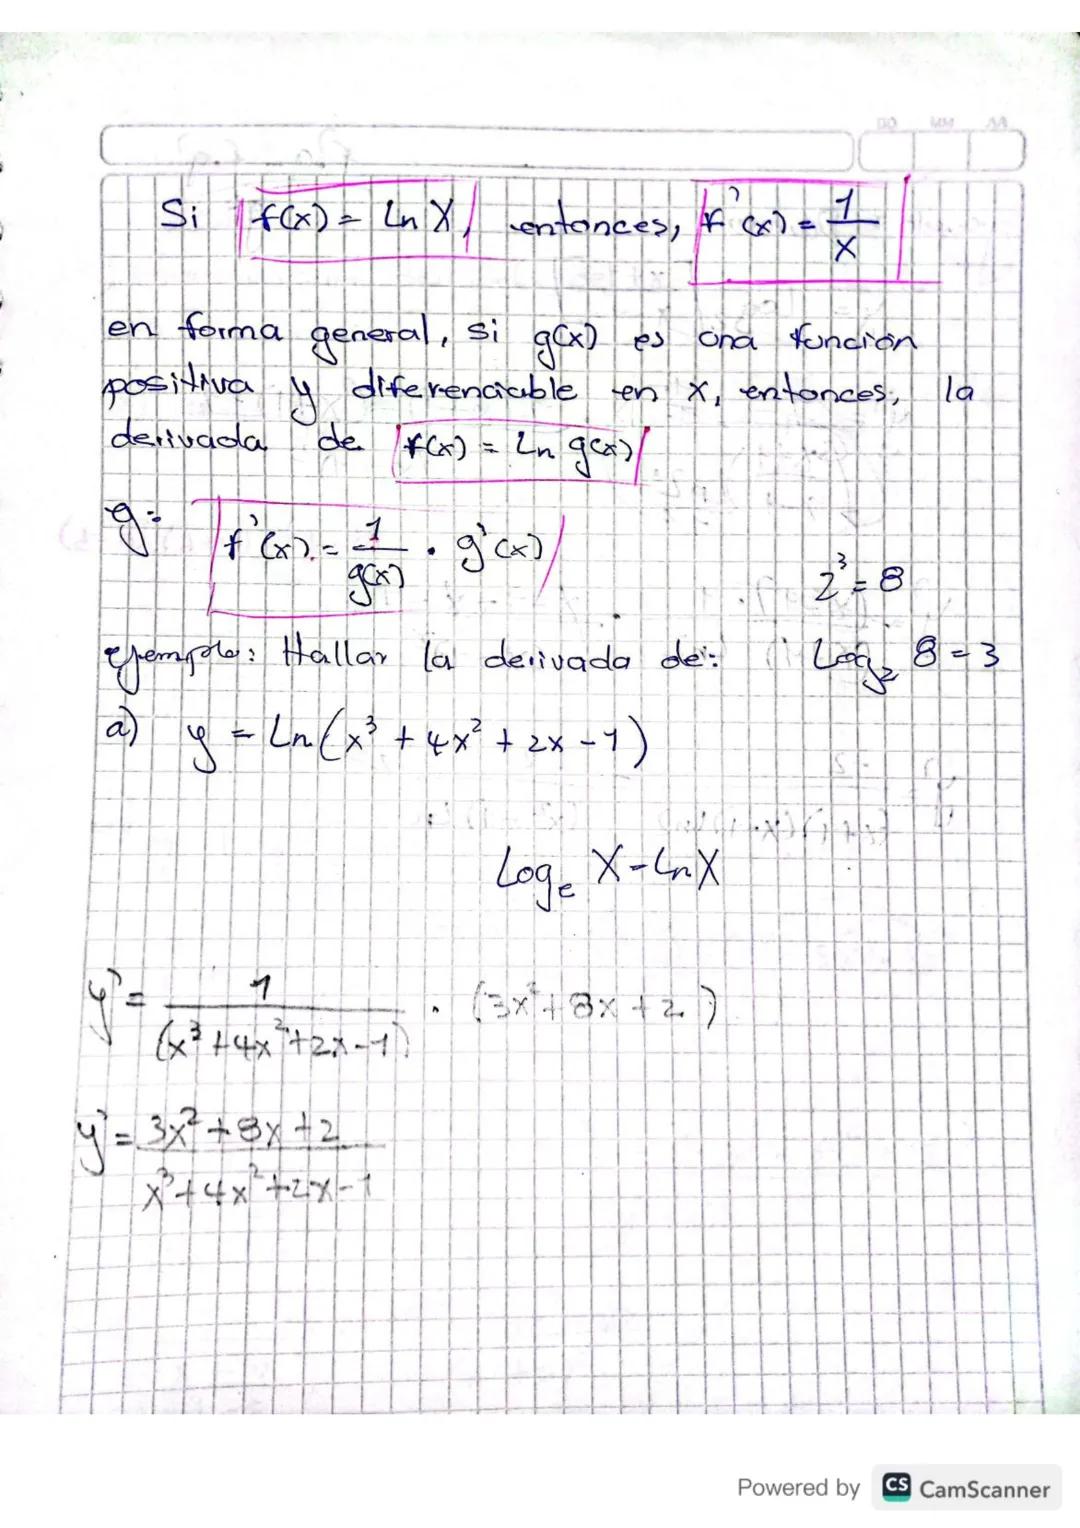 DD MM AA
Si f(x) = Ln X, entonces, f'(x) = 1/x
en forma general, si g(x) es una función
positiva y diferenciable en x, entonces, la
derivada de f(x) = Ln g(x)
f'(x) = 1/g(x) · g'(x)
2³ = 8
ejemplo: Hallar la derivada de: Log₂ 8 = 3
a) y = Ln(x³ + 4x² + 2x - 1)
Logₑ X - Ln X
y' = 1/(x³ + 4x² + 2x - 1) · (3x² + 8x + 2)
y' = 3x² + 8x + 2
x³ + 4x² + 2x - 1
Powered by CS CamScanner